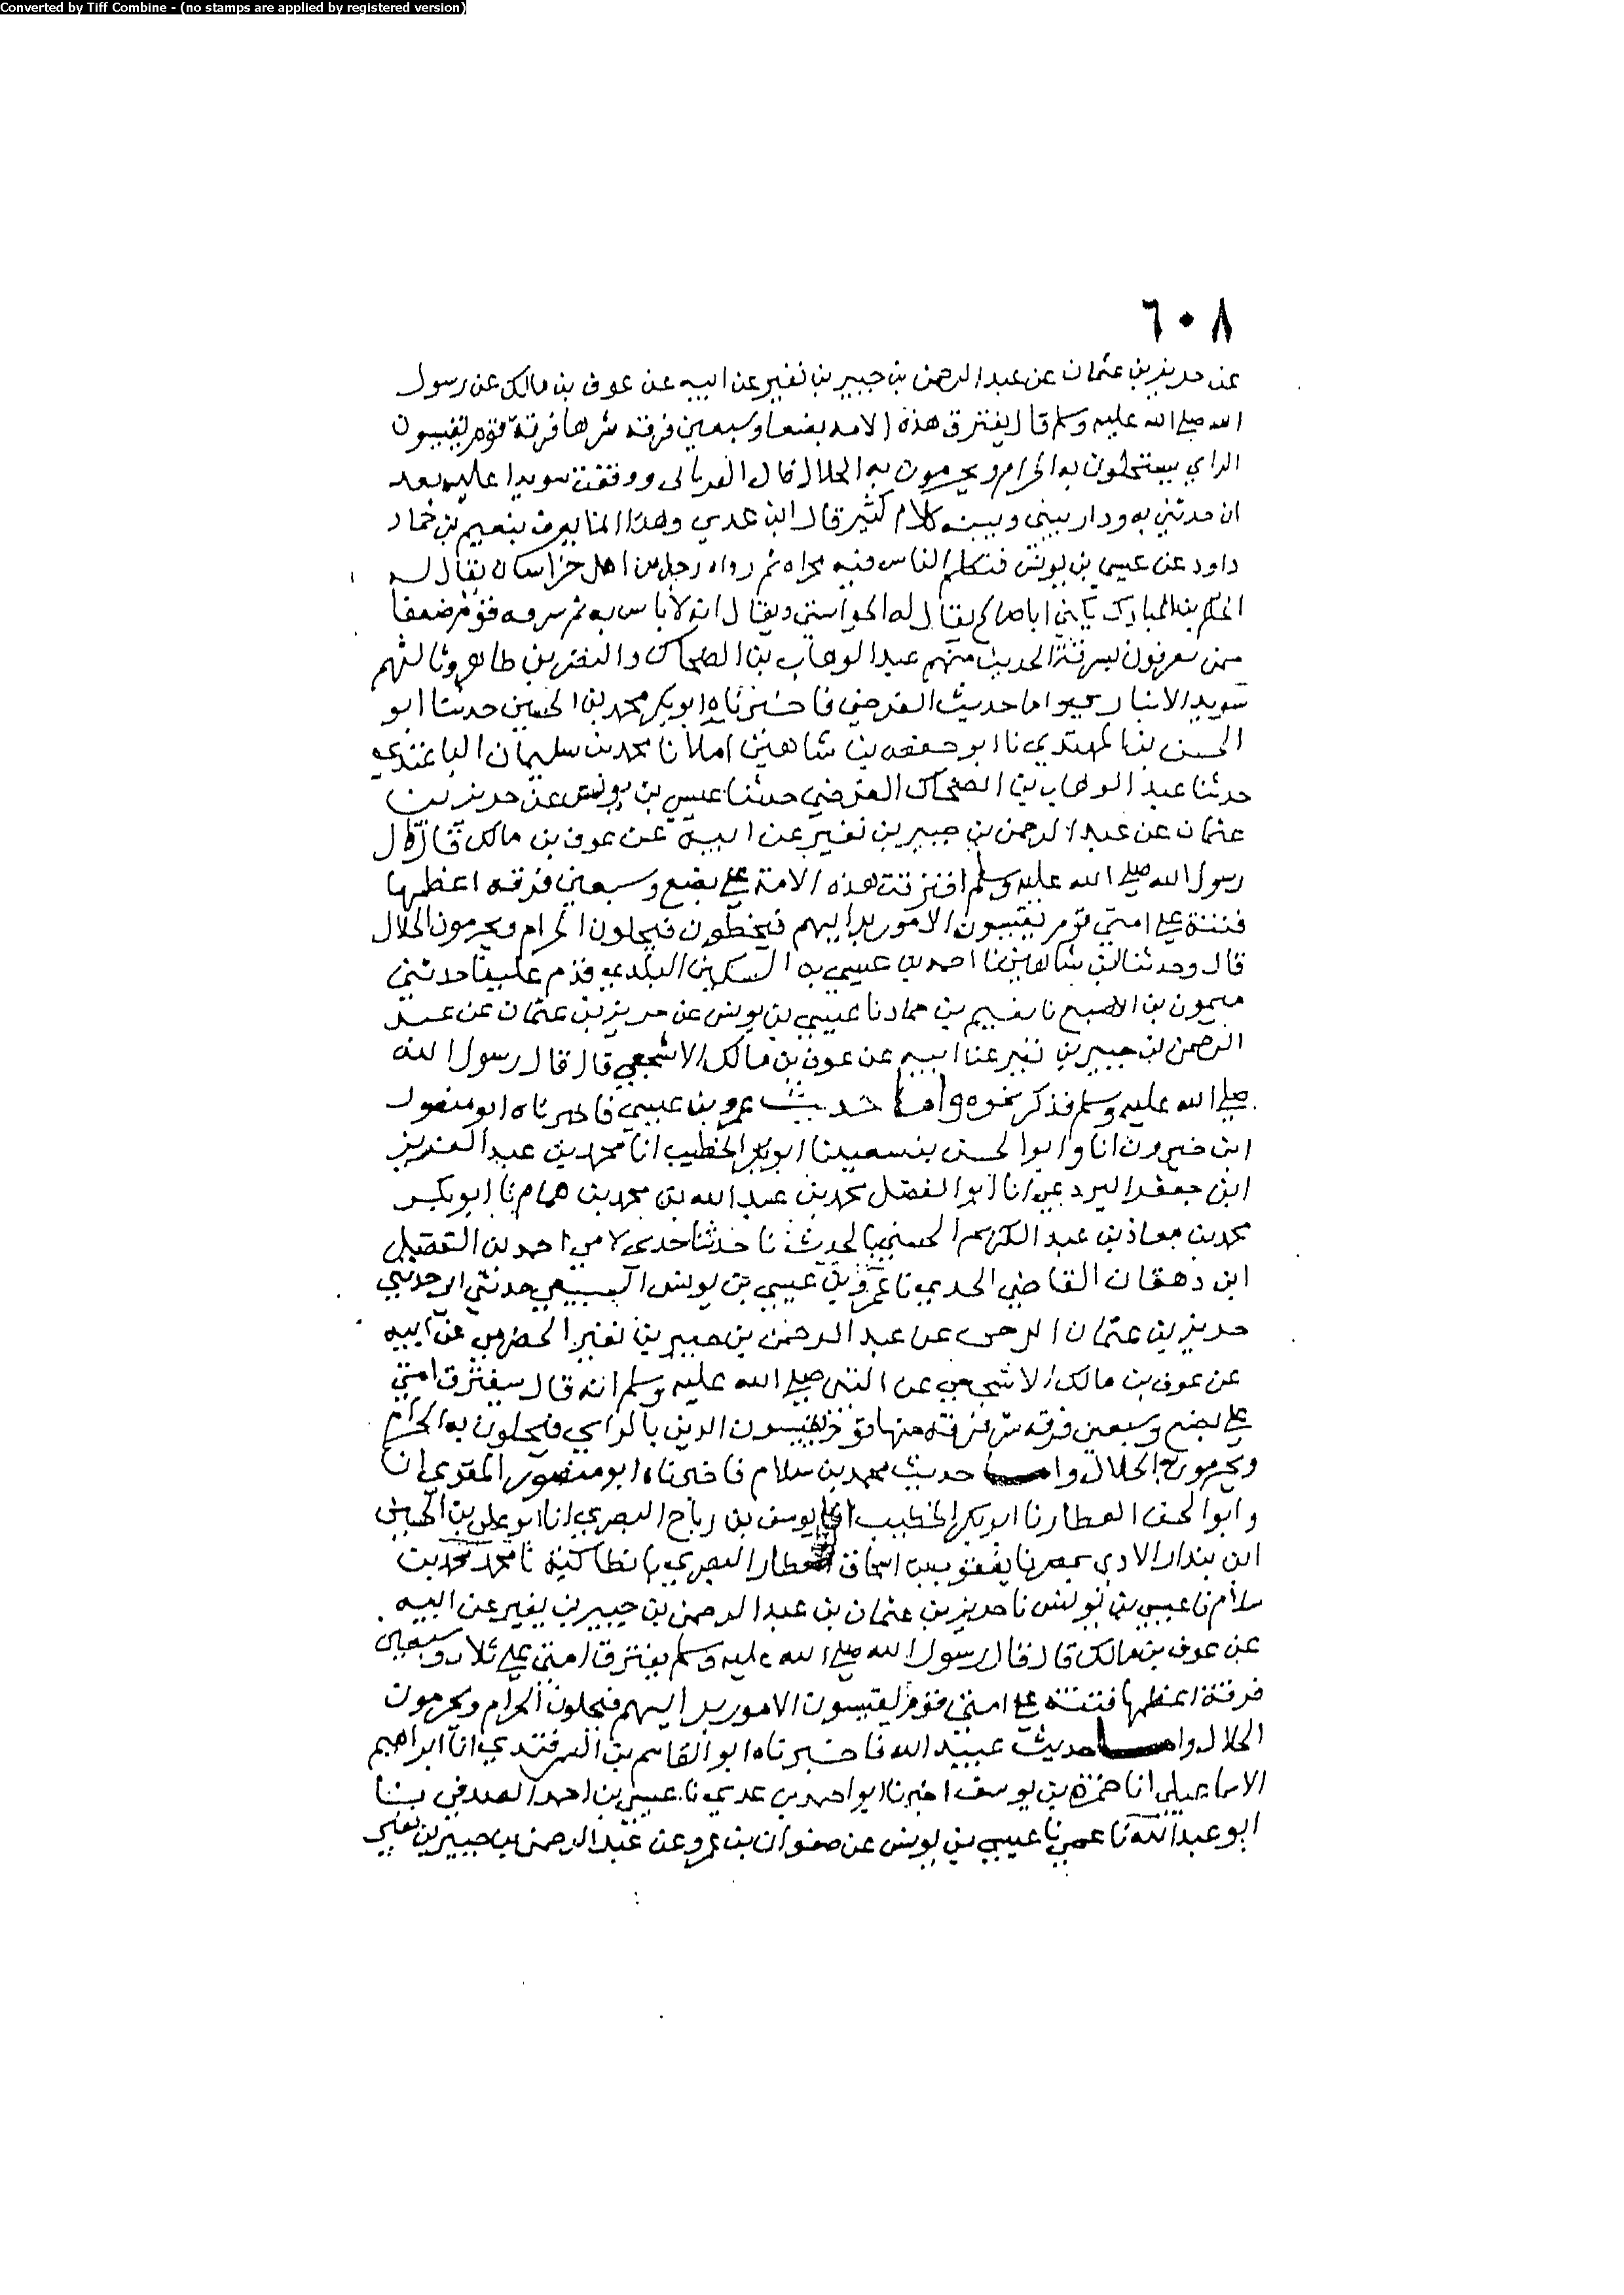 Converted by Tiff Combine - (no stamps are applied by registered version)
٦٠٨
عن حريز بن عثمان عن عبد الرحمن بن جبير بن نفير عن ابيه عن عوف بن مالك عن رسول
الله صلى الله عليه وسلم قال يفترق هذه الامه بضعا وسبعين فرقه شرها فرقة قوم يقيسون
الراي يستحلون به الحرام ويحرمون به الحلال قال الفريابى ووقفت سويدا عليه بعد
ان حدثني به ودار بيني وبينه كلام كثير قال ابن عدي وهذا انما يعرف بنعيم بن حماد
داود عن عيسى بن يونس فتكلم الناس فيه مجراه ثم رواه رجل من اهل خراسان يقال له
الحكم بن المبارك يكنى ابا صالح يقال له الخواستي ويقال انه لا باس به ثم سرقه قوم ضعفا
ممن يعرفون بسرقة الحديث منهم عبد الوهاب بن الضحاك والنضر بن طاهر وثالثهم
سويد الانباري واما حديث العرضي فاخبرناه ابو بكر محمد بن الحسين حدثنا ابو
الحسن بن المهتدي نا ابو حفص بن شاهين املا نا محمد بن سليمان الباغندي
حدثنا عبد الوهاب بن الضحاك العرضي حدثنا عيسى بن يونس عن حريز بن
عثمان عن عبد الرحمن بن جبير بن نفير عن ابيه عن عوف بن مالك قال قال
رسول الله صلى الله عليه وسلم افترقت هذه الامة على بضع وسبعين فرقه اعظمها
فتنة على امتي قوم يقيسون الامور برايهم فيخطون فيحلون الحرام ويحرمون الحلال
قال وحدثنا ابن شاهين نا احمد بن عيسى بن السكين البلدي قدم علينا حدثني
ميمون بن الاصبع نا نعيم بن حماد نا عيسى بن يونس عن حريز بن عثمان عن عبد
الرحمن بن جبير بن نفير عن ابيه عن عوف بن مالك الاشجعي قال قال رسول الله
صلى الله عليه وسلم فذكر نحوه واما حديث عمرو بن عيسى فاخبرناه ابو منصور
ابن خيرون انا وابو الحسن بن سعيد نا ابو بكر الخطيب انا محمد بن عبد العزيز
ابن جعفر البردعي انا ابو الفضل محمد بن عبد الله بن محمد بن همام نا ابو بكر
محمد بن معاذ بن عبد الكريم الحسني بالحديثة نا حدثنا جدى لامي احمد بن الفضل
ابن دهقان القاضي الحدي نا عمرو بن عيسى بن يونس السبيعي حدثني ابى حدثني
حريز بن عثمان الرحبى عن عبد الرحمن بن جبير بن نفير الحضرمي عن ابيه
عن عوف بن مالك الاشجعي عن النبي صلى الله عليه وسلم انه قال ستفترق امتي
على بضع وسبعين فرقه شر فرقة منها قوم يقيسون الدين بالراي فيحلون به الحرام
ويحرمون به الحلال واما حديث محمد بن سلام فاخبرناه ابو منصور المقري انا
وابو الحسن العطار نا ابو بكر الخطيب انا يوسف بن رباح البصري انا ابو علي بن الحسين
ابن بندار الادي بمصر نا يعقوب بن اسحاق العطار البصري بانطاكية نا محمد بن
سلام نا عيسى بن يونس نا حريز بن عثمان بن عبد الرحمن بن جبير بن نفير عن ابيه
عن عوف بن مالك قال قال رسول الله صلى الله عليه وسلم يفترق امتي على ثلاث وسبعين
فرقة اعظمها فتنة على امتي قوم يقيسون الامور برايهم فيحلون الحرام ويحرمون
الحلال واما حديث عبيد الله فاخبرناه ابو القاسم بن السمرقندي انا ابراهيم
الاسماعيلي انا حمزة بن يوسف اخبرنا ابو احمد بن عدي نا عيسى بن احمد الصدفي بنا
ابو عبد الله نا عمي نا عيسى بن يونس عن صفوان بن عمرو عن عبد الرحمن بن جبير بن نفير